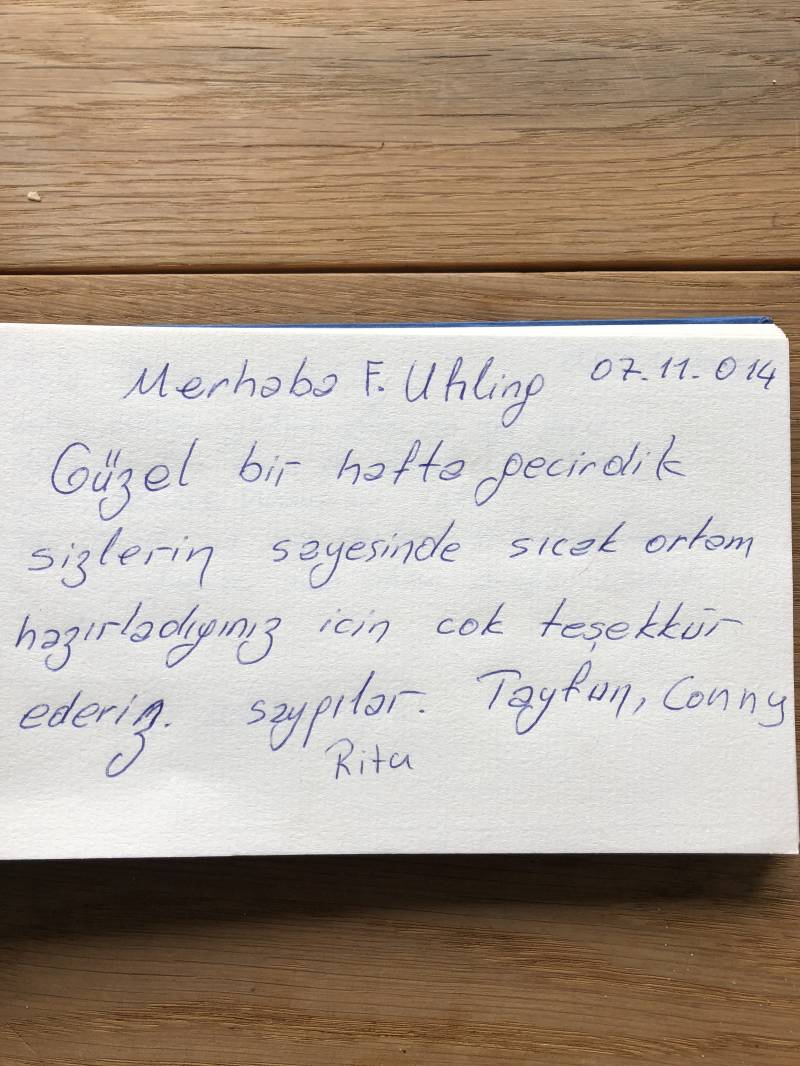 Merhaba F. Uhling 07.11.014
Güzel bir hafta gecirdik
sizlerin sayesinde sıcak ortam
hazırladıgınız icin cok teşekkür
ederiz. saygılar. Tayfun, Conny
Rita